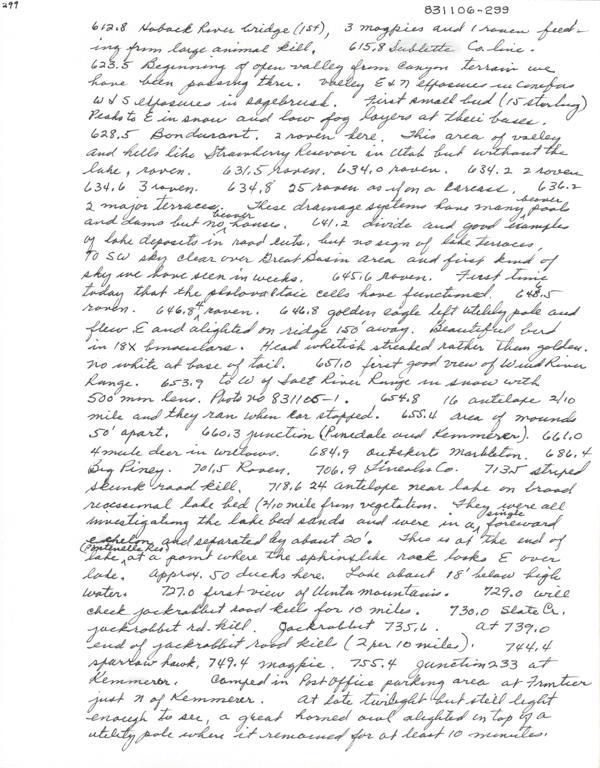 299
831106-299
612.8 Hoback River bridge (1st), 3 magpies and 1 raven feed-
ing from large animal kill. 615.8 Sublette Co. line.
623.5 Beginning of open valley from canyon terrain we
have been passing thru. Valley E & N exposures in conifers
W & S exposures in sagebrush. First small bird (15 starling)
Peaks to E in snow and low fog layers at their bases.
628.5 Bondurant. 2 raven here. This area of valley
and hills like Strawberry Reservoir in Utah but without the
lake, raven. 631.5 raven. 634.0 raven. 634.2 2 raven
634.6 3 raven. 634.8 25 raven as if on a carcass. 636.2
2 major terraces. These drainage systems have many beaver pools
and dams but no beaver houses. 641.2 divide and good examples
of lake deposits in road cuts, but no sign of lake terraces,
To SW sky clear over Great Basin area and first kind of
sky we have seen in weeks. 645.6 raven. First time
today that the photovoltaic cells have functioned. 646.5
raven. 646.8 4 raven. 646.8 golden eagle left utility pole and
flew E and alighted on ridge 150' away. Beautiful bird
in 18X binoculars. Head whitish streaked rather than golden.
no white at base of tail. 651.0 first good view of Wind River
Range. 653.9 to W of Salt River Range in snow with
500 mm lens. Photo no 831105-1. 654.8 16 antelope 2/10
mile and they ran when car stopped. 655.4 area of mounds
50' apart. 660.3 junction (Pinedale and Kemmerer). 661.0
4 mule deer in willows. 684.9 outskirts Marbleton. 686.4
Big Piney. 701.5 Raven. 706.9 Lincoln Co. 713.5 striped
skunk road kill. 718.6 24 antelope near lake on broad
recessional lake bed (2/10 mile from vegetation. They were all
investigating the lake bed sands and were in a single foreward
echelon and separated by about 20'. This is at the end of
lake (Fontenelle Res) at a point where the sphinxlike rock looks E over
lake. Approx. 50 ducks here. Lake about 18' below high
water. 727.0 first view of Uinta Mountains. 729.0 will
check jackrabbit road kills for 10 miles. 730.0 Slate Cr.
jackrabbit rd. kill. Jackrabbit 735.6. At 739.0
end of jackrabbit road kills (2 per 10 miles). 744.4
sparrow hawk, 749.4 magpie. 755.4 junction 233 at
Kemmerer. Camped in Post Office parking area at Frontier
just N of Kemmerer. At late twilight but still light
enough to see, a great horned owl alighted on top of a
utility pole where it remained for at least 10 minutes.